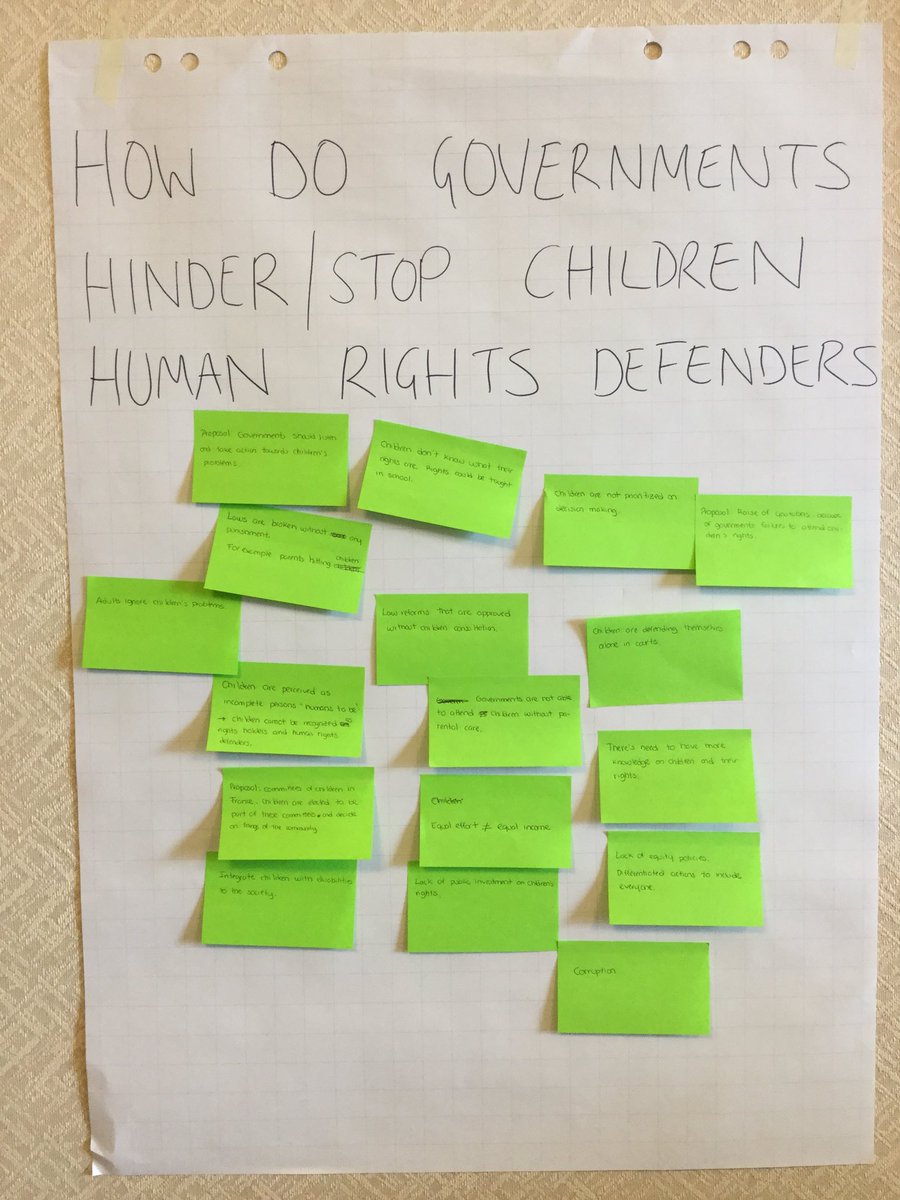 HOW DO GOVERNMENTS
HINDER/STOP CHILDREN
HUMAN RIGHTS DEFENDERS
Proposal: Governments should listen
and take action towards children's
problems.
Children don't know what their
rights are. Rights could be taught
in school.
Children are not prioritized on
decision making.
Proposal: Raise of
of governments failures to attend chil
dren's rights.
Laws are broken without any
punishment.
For example parents hitting children
Adults ignore children's problems
Law reforms that are approved
without children consultation.
Children are defending themselves
alone in courts.
Children are perceived as
incomplete persons "humans to be"
→ children cannot be recognized as
rights holders and human rights
defenders.
Governments are not able
to attend children without pa-
rental care.
There's need to have more
knowledge on children and their
rights.
Proposal: committees of children in
France. Children are elected to be
part of these committees and decide
on things of the community.
Children
Equal effort ≠ equal income
Lack of equity policies.
Differentiated actions to include
everyone.
Integrate children with disabilities
to the society.
Lack of public investment on children's
rights.
Corruption